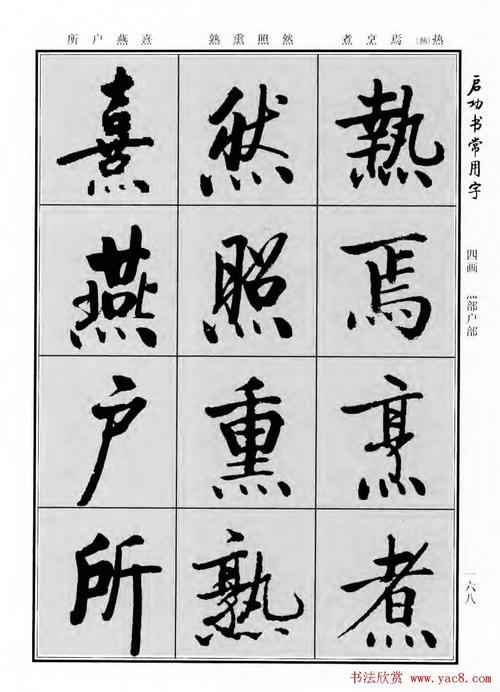 启功书常用字
四画 灬部户部
一六八
热(熱)焉烹煮 然照熏熟 熹燕户所
熱焉烹煮
然照熏熟
熹燕户所
书法欣赏 www.yac8.com